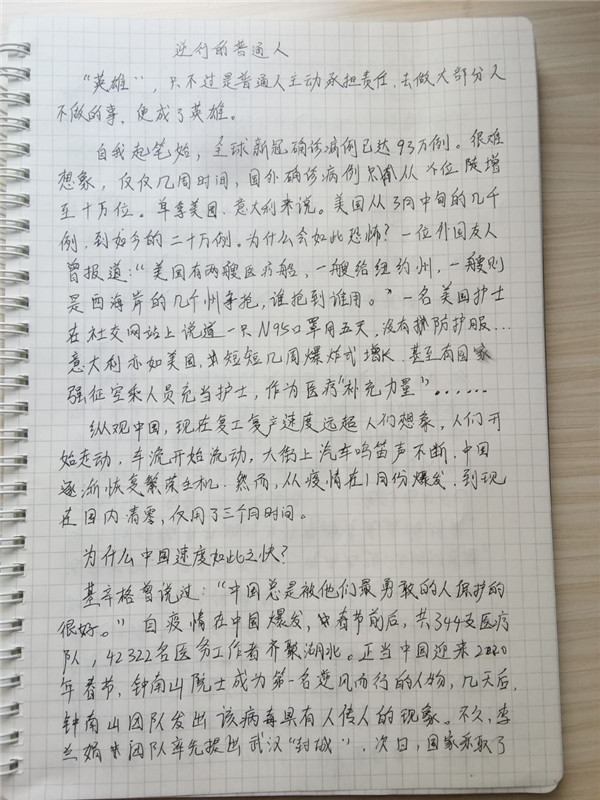 逆行的普通人
“英雄”,只不过是普通人主动承担责任,去做大部分人
不做的事,便成了英雄。
自我起笔始,全球新冠确诊病例已达93万例。很难
想象,仅仅几周时间,国外确诊病例从个位陡增
至十万位。单拿美国、意大利来说。美国从3月中旬的几千
例,到如今的二十万例。为什么会如此恐怖?一位外国友人
曾报道:“美国有两艘医疗船,一艘给纽约州,一艘则
是西海岸的几个州争抢,谁抢到谁用。”一名美国护士
在社交网站上说道一只N95口罩用五天,没有防护服...
意大利亦如美国,短短几周爆炸式增长,甚至有国家
强征空乘人员充当护士,作为医疗“补充力量”......
纵观中国,现在复工复产速度远超人们想象,人们开
始走动,车流开始流动,大街上汽车鸣笛声不断,中国
逐渐恢复繁荣生机。然而,从疫情在1月份爆发,到现
在国内清零,仅用了三个月时间。
为什么中国速度如此之快?
基辛格曾说过:“中国总是被他们最勇敢的人保护的
很好。”自疫情在中国爆发,春节前后,共344支医疗
队,42322名医务工作者齐聚湖北。正当中国迎来2020
年春节,钟南山院士成为第一名逆风而行的人物,几天后,
钟南山团队发出该病毒具有人传人的现象。不久,李
兰娟团队率先提出武汉“封城”,次日,国家采取了